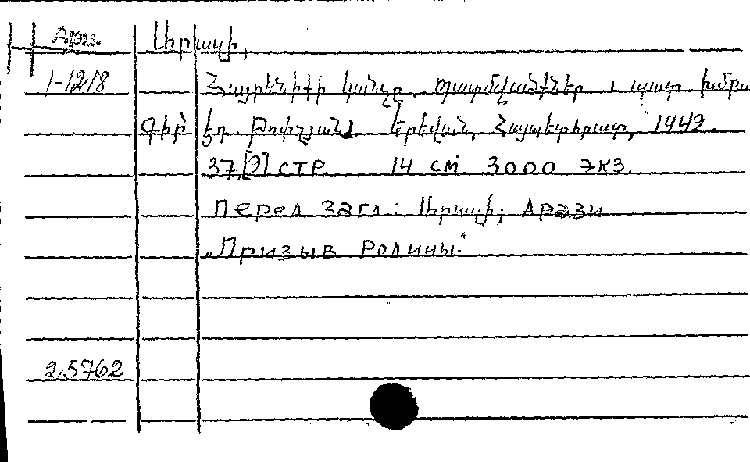 Арм. Արազի,
1-1218 Հայրենիքի կանչը. Պատմվածքներ, պատ. խմբա
գիր՝ Եդ. Թոփչյան. Երեվան, Հայպետհրատ, 1942.
37 [3] стр 14 см 3000 экз.
Перед загл.: Արազի; Арази
„Призыв Родины."
2.5762